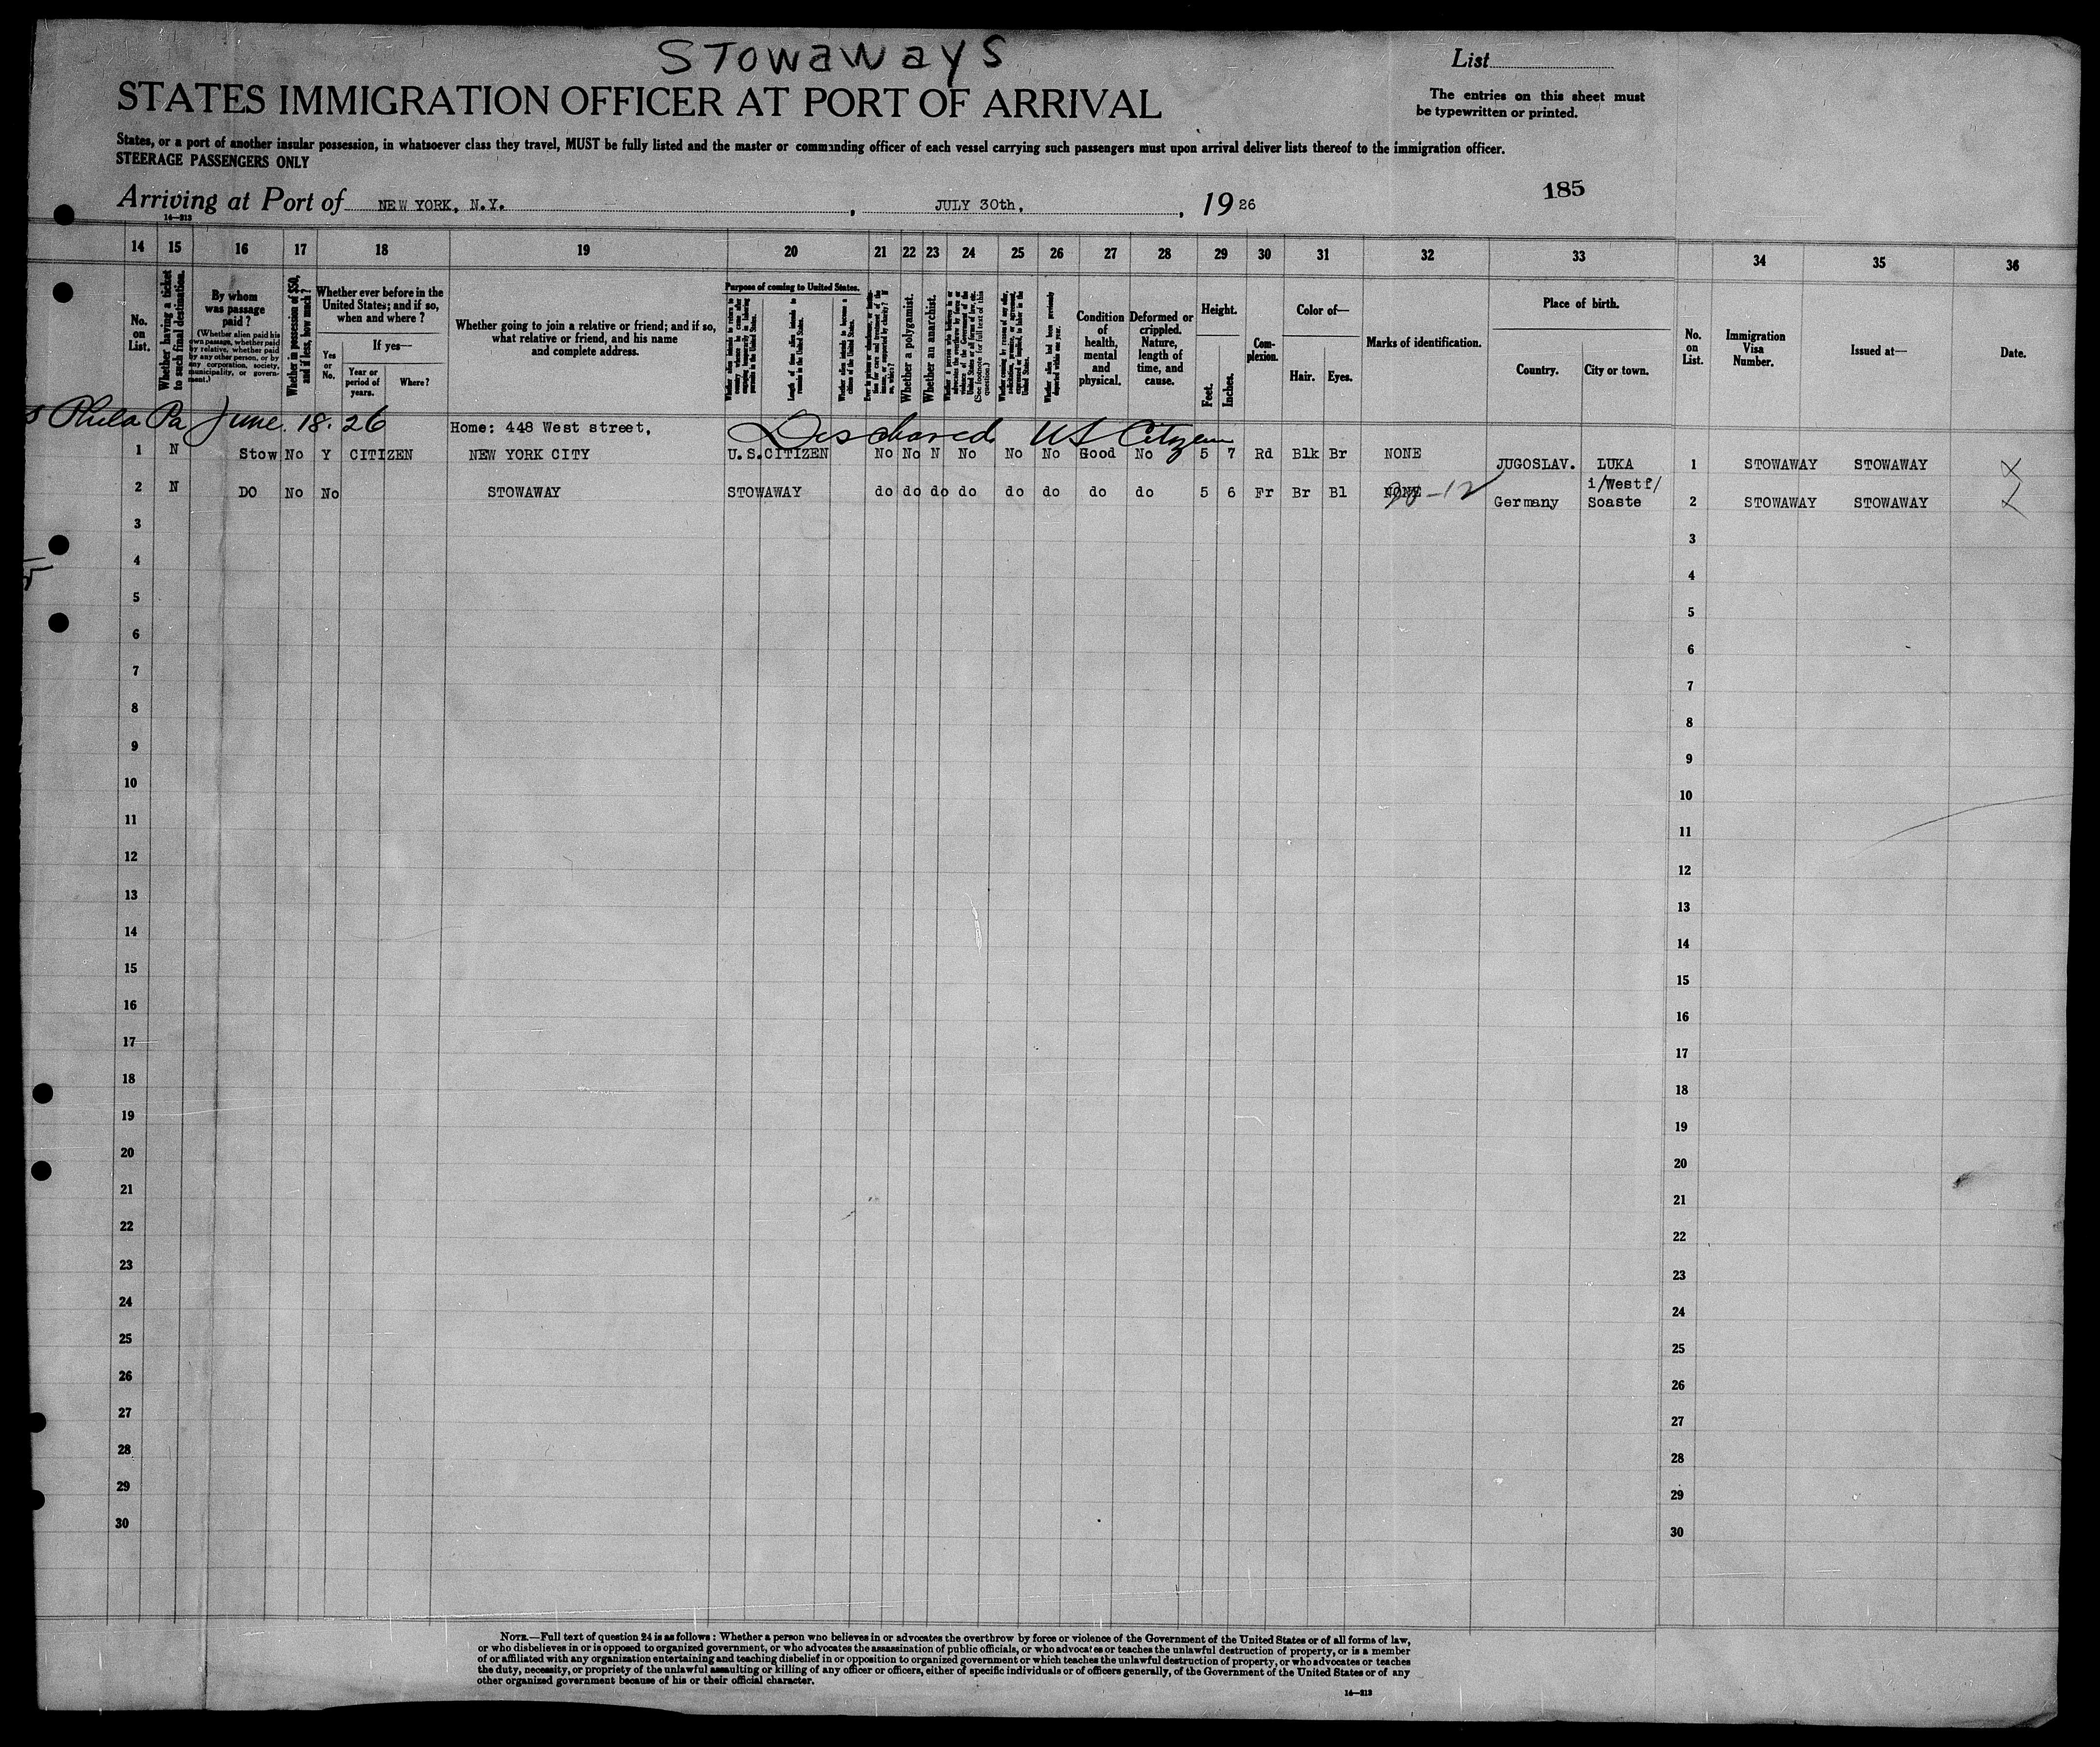 STOWAWAYS
List
STATES IMMIGRATION OFFICER AT PORT OF ARRIVAL
The entries on this sheet must
be typewritten or printed.
States, or a port of another insular possession, in whatsoever class they travel, MUST be fully listed and the master or commanding officer of each vessel carrying such passengers must upon arrival deliver lists thereof to the immigration officer.
STEERAGE PASSENGERS ONLY
185
Arriving at Port of NEW YORK, N.Y. , JULY 30th, , 19 26
14—212
14 15 16 17 18 19 20 21 22 23 24 25 26 27 28 29 30 31 32 33 34 35 36
No. on List.
Whether having a ticket to such final destination.
By whom was passage paid?
(Whether alien paid his own passage, whether paid by relative, whether paid by any other person, or by any corporation, society, municipality, or government.)
Whether in possession of $50, and if less, how much?
Whether ever before in the United States; and if so, when and where?
Yes or No.
If yes—
Year or period of years.
Where?
Whether going to join a relative or friend; and if so, what relative or friend, and his name and complete address.
Purpose of coming to United States.
Whether alien intends to return to country whence he came after engaging temporarily in laboring pursuits in the United States.
Length of time alien intends to remain in the United States.
Whether alien intends to become a citizen of the United States.
Whether a polygamist.
Whether an anarchist.
(See footnote for full text of this question.)
Whether alien had been previously deported within one year.
Condition of health, mental and physical.
Deformed or crippled. Nature, length of time, and cause.
Height.
Feet.
Inches.
Complexion.
Color of—
Hair.
Eyes.
Marks of identification.
Place of birth.
Country.
City or town.
No. on List.
Immigration Visa Number.
Issued at—
Date.
Phila Pa June 18. 26
Home: 448 West street,
Discharged US Citizen
1 N Stow No Y CITIZEN NEW YORK CITY U.S.CITIZEN No No N No No No Good No 5 7 Rd Blk Br NONE JUGOSLAV. LUKA 1 STOWAWAY STOWAWAY
i/Westf/
2 N DO No No STOWAWAY STOWAWAY do do do do do do do do 5 6 Fr Br Bl NONE Germany Soaste 2 STOWAWAY STOWAWAY
3 3
4 4
5 5
6 6
7 7
8 8
9 9
10 10
11 11
12 12
13 13
14 14
15 15
16 16
17 17
18 18
19 19
20 20
21 21
22 22
23 23
24 24
25 25
26 26
27 27
28 28
29 29
30 30
NOTE.—Full text of question 24 is as follows: Whether a person who believes in or advocates the overthrow by force or violence of the Government of the United States or of all forms of law,
or who disbelieves in or is opposed to organized government, or who advocates the assassination of public officials, or who advocates or teaches the unlawful destruction of property, or is a member
of or affiliated with any organization entertaining and teaching disbelief in or opposition to organized government or which teaches the unlawful destruction of property, or who advocates or teaches
the duty, necessity, or propriety of the unlawful assaulting or killing of any officer or officers, either of specific individuals or of officers generally, of the Government of the United States or of any
other organized government because of his or their official character.
14—212